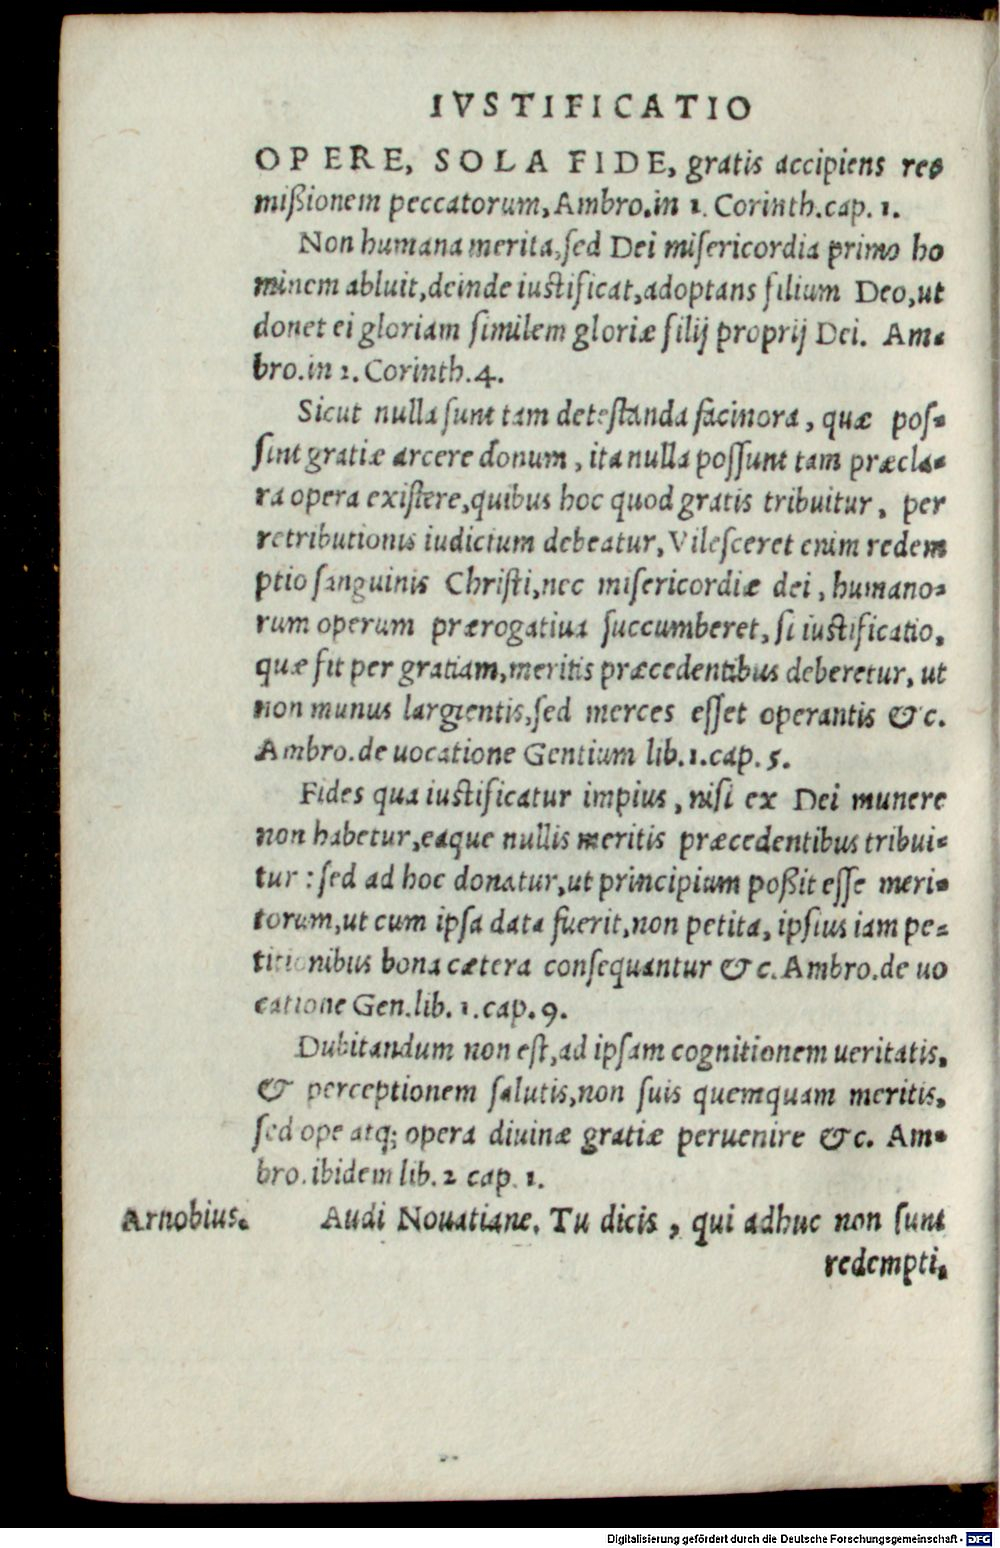 IVSTIFICATIO
OPERE, SOLA FIDE, gratis accipiens re-
mißionem peccatorum, Ambro.in 1. Corinth.cap. 1.
Non humana merita,sed Dei misericordia primo ho
minem abluit,deinde iustificat,adoptans filium Deo,ut
donet ei gloriam similem gloriæ filij proprij Dei. Am-
bro.in 1. Corinth.4.
Sicut nulla sunt tam detestanda facinora, quæ pos-
sint gratiæ arcere donum, ita nulla possunt tam præcla-
ra opera existere,quibus hoc quod gratis tribuitur, per
retributionis iudicium debeatur, Vilesceret enim redem
ptio sanguinis Christi,nec misericordiæ dei, humano-
rum operum prærogatiua succumberet, si iustificatio,
quæ fit per gratiam,meritis præcedentibus deberetur, ut
non munus largientis,sed merces esset operantis &c.
Ambro.de uocatione Gentium lib.1.cap. 5.
Fides qua iustificatur impius, nisi ex Dei munere
non habetur,eaque nullis meritis præcedentibus tribui-
tur : sed ad hoc donatur,ut principium poßit esse meri-
torum,ut cum ipsa data fuerit,non petita, ipsius iam pe-
titionibus bona cætera consequantur &c. Ambro.de uo
catione Gen.lib. 1.cap.9.
Dubitandum non est,ad ipsam cognitionem ueritatis,
& perceptionem salutis,non suis quemquam meritis,
sed ope atq; opera diuinæ gratiæ peruenire &c. Am-
bro.ibidem lib.2 cap. 1.
Arnobius. Audi Nouatiane. Tu dicis, qui adhuc non sunt
redempti,
Digitalisierung gefördert durch die Deutsche Forschungsgemeinschaft - DFG